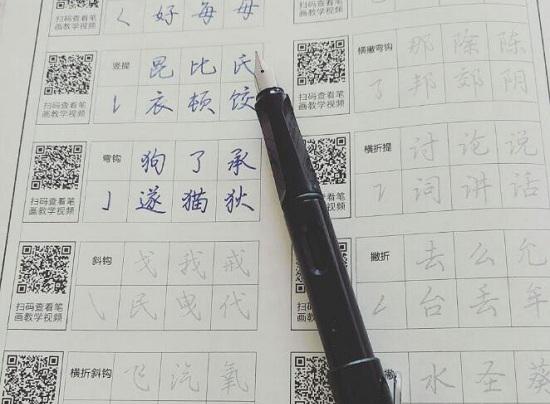 好每母
扫码查看笔
画教学视频
竖提
昆比氏
衣顿饺
扫码查看笔
画教学视频
弯钩
狗了承
遂猫狄
扫码查看笔
画教学视频
斜钩
戈我戒
民曳代
扫码查看笔
画教学视频
横折斜钩
飞汽氧
扫码查看笔
画教学视频
横撇弯钩
那除陈
邦郊阴
扫码查看笔
画教学视频
横折提
讨论说
词讲话
扫码查看笔
画教学视频
撇折
去么允
台丢牟
扫码查看笔
画教学视频
水圣葵